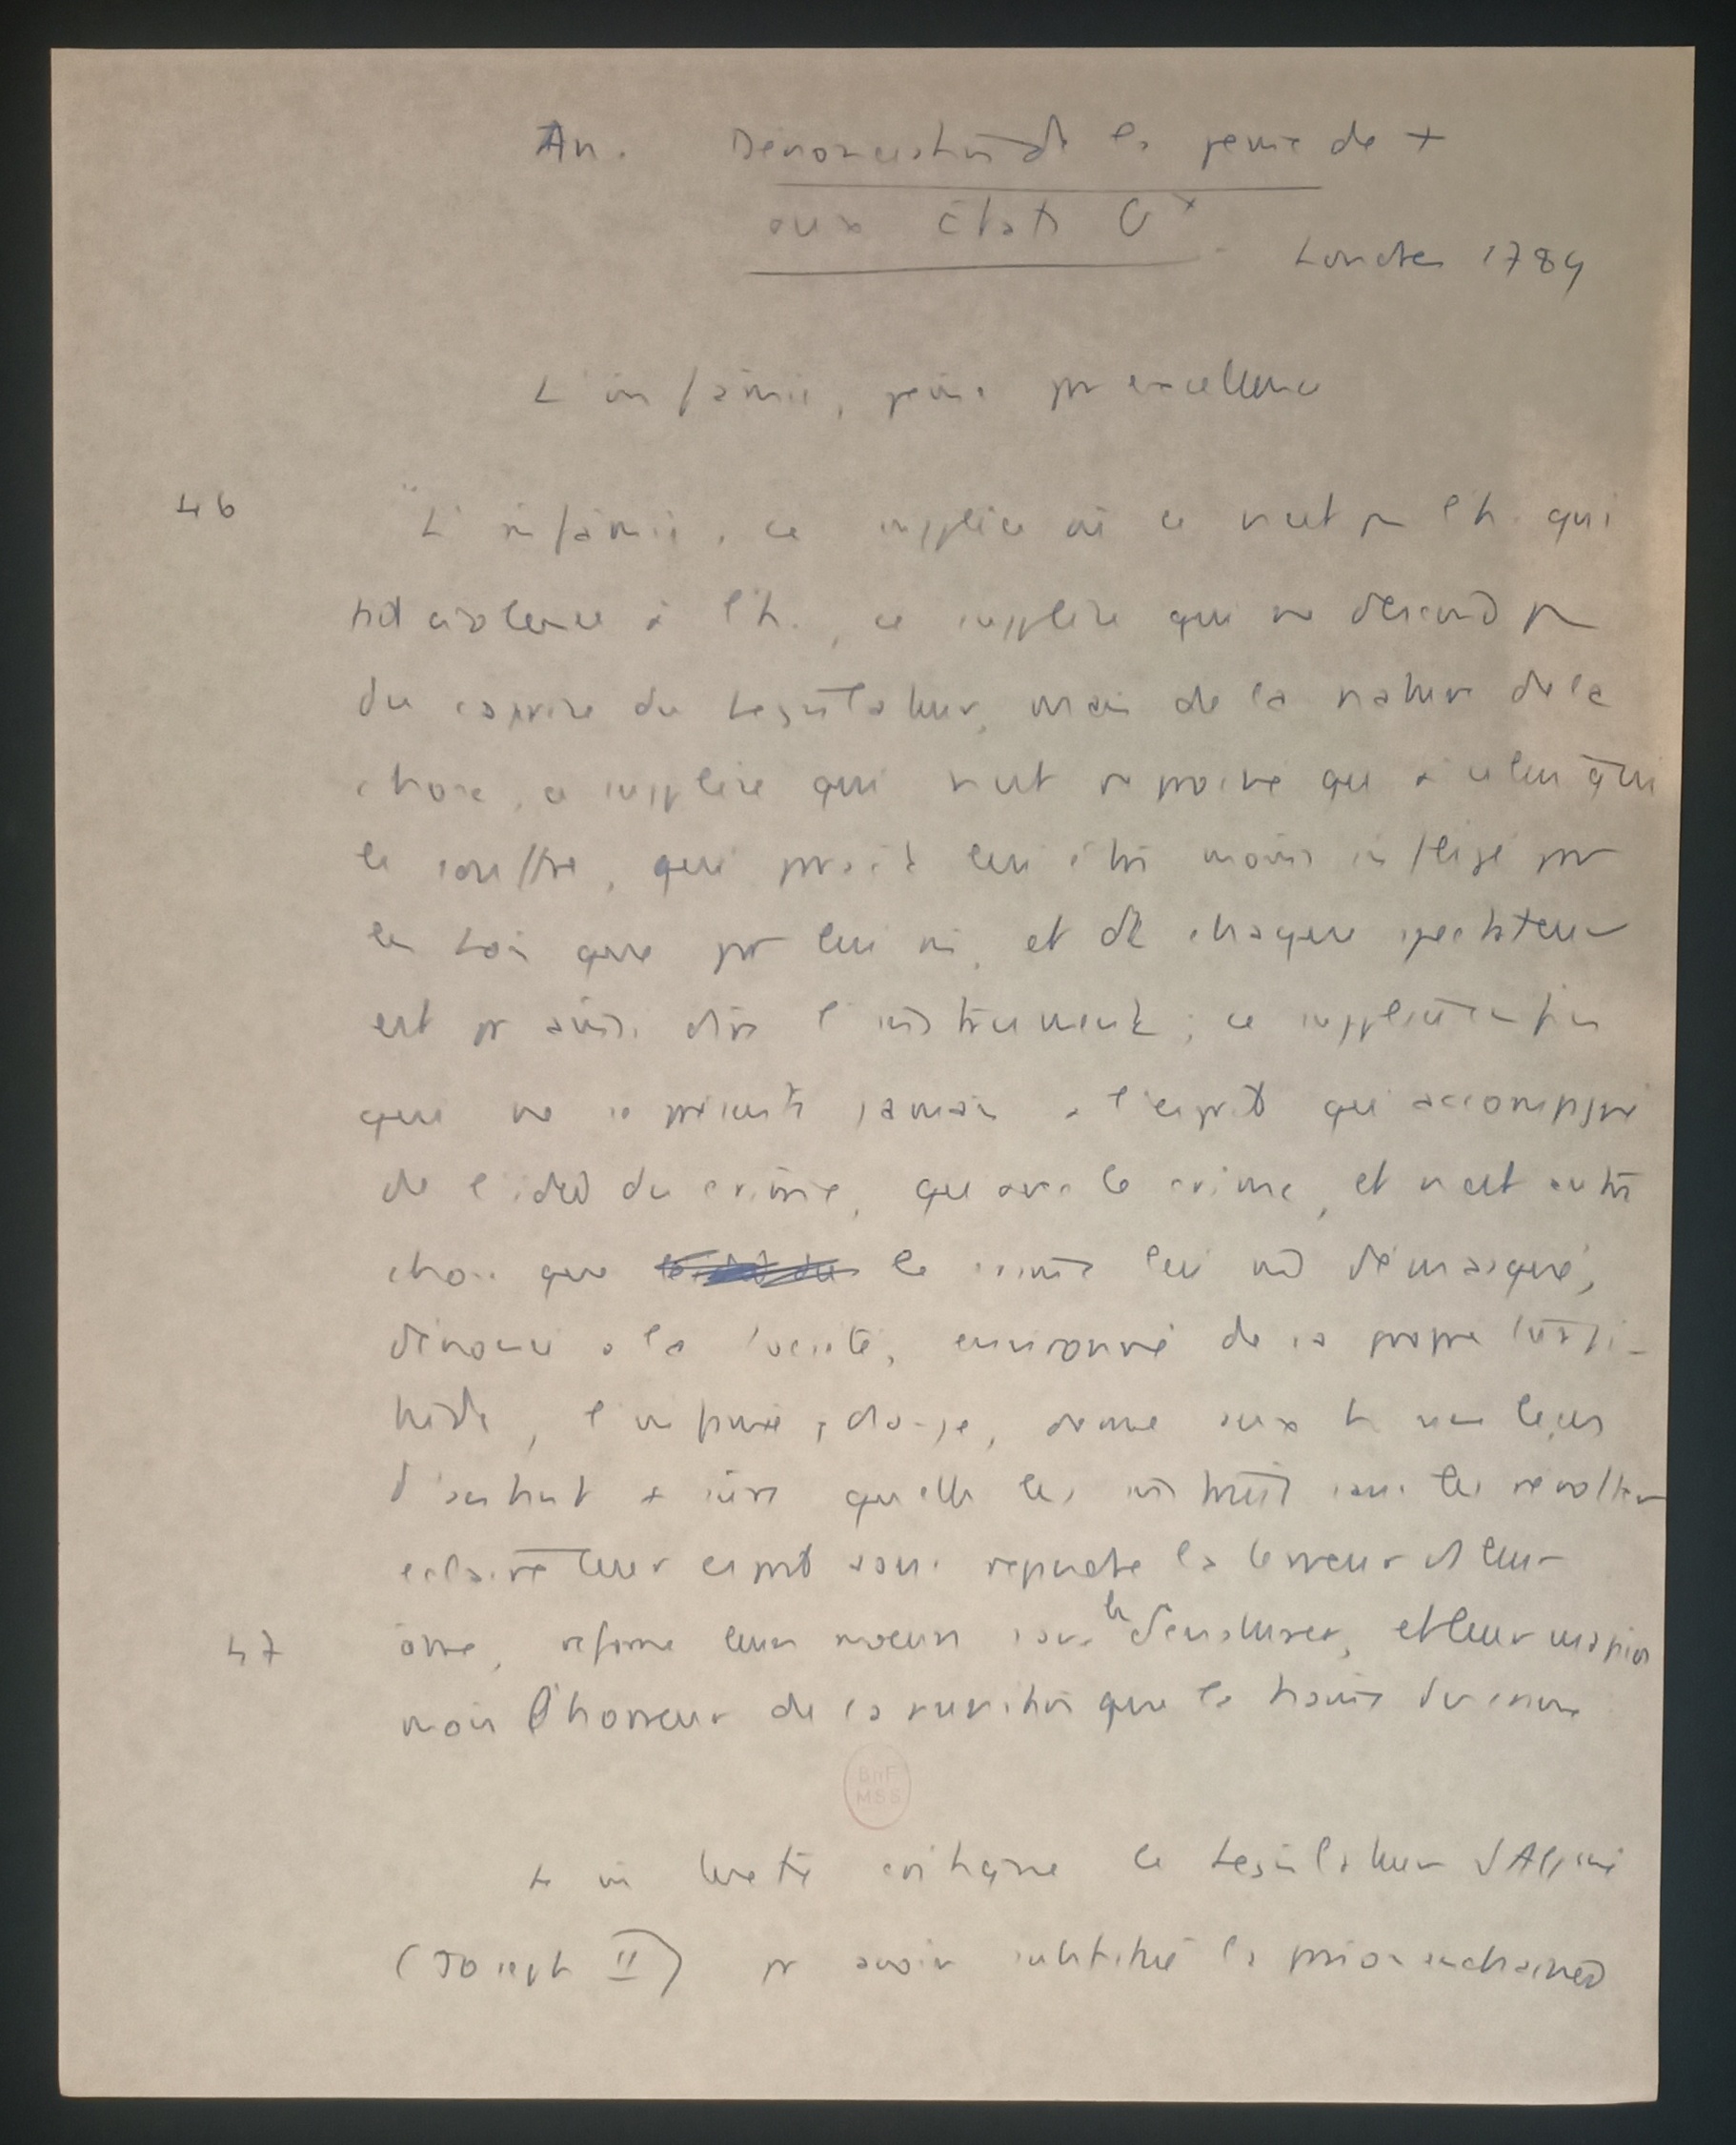 An. Dénonciation de la peine de +
aux États Gx.
Londres 1789
L'infamie, peine par excellence
46 "L'infamie, ce supplice où ce n'est pas l'h. qui
fait violence à l'h., ce supplice qui ne descend pas
du caprice du Législateur, mais de la nature de la
chose, ce supplice qui n'est ... qu'à celui qui
le souffre, qui paraît lui être moins infligé par
la Loi que par lui m, et dt chaque spectateur
est pr ainsi dire l'instrument ; ce supplice enfin
qui ne se présente jamais à l'esprit qu'accompagné
de l'idée du crime, qu'avec le crime, et n'est autre
chose que le crime lui m démasqué,
dénoncé à la société, environné de sa propre turpi-
tude, l'infamie, dis-je, donne aux h une leçon
d'autant + sûre qu'elle les instruit sans les révolter
éclaire leur esprit sans répandre la terreur ds leur
47 âme, réforme leurs mœurs sans les dénaturer, et leur inspire
moins l'horreur de la punition que la haine du crime
Le m texte critique le Législateur d'All
(Joseph II) pr avoir substitué la prison enchaînée
BnF
MSS